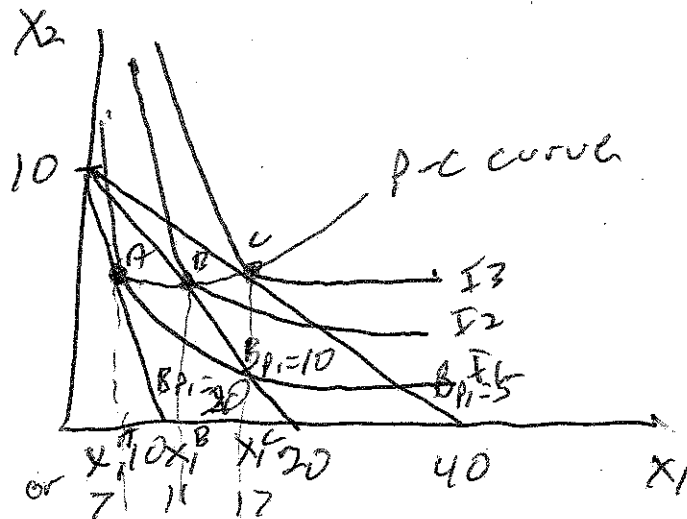 X2
10
P-C curve
A
B
C
I3
I2
I1
Bp1=20
Bp1=10
Bp1=5
x1A 10 x1B x1C 20 40 X1
or 7 11 17